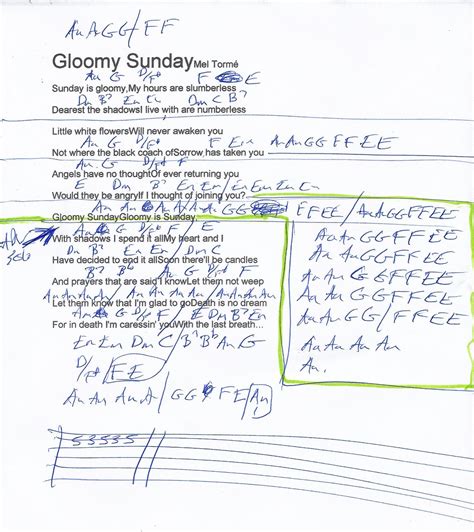 Am Am G G / F F
Gloomy Sunday Mel Tormé
Am G D/F# F E
Sunday is gloomy,My hours are slumberless
Dm B7 Em Em Dm C B7
Dearest the shadowsI live with are numberless
Little white flowersWill never awaken you
Am G D/F# F E Em Am Am G G F F E E
Not where the black coach ofSorrow has taken you
Am G D/F# F
Angels have no thoughtOf ever returning you
E Dm B7 Em Em / Em Em Em Em
Would they be angryIf I thought of joining you?
Am Am G G F F E E / Am Am G G F F E E
Gloomy SundayGloomy is Sunday,
Am G D/F# F E
With shadows I spend it allMy heart and I
Em Em Dm C
Have decided to epd it allSoon there'll be candles
B7 Am G D/F# F
And prayers that are said I knowLet them not weep
Am Am Am Am / Am Am Am Am / Am Am Am Am
Let them know that I'm glad to goDeath is no dream
Am G D/F# F / E Dm B7 Em
For in death I'm caressin' youWith the last breath...
Em Em Dm C / B7 Am G
D/F# / F E
Am Am Am Am / G G F F E E Am
Am Am G G F F E E
Am Am G G F F E E
Am Am G G F F E E
Am Am G G F F E E
Am Am G G / F F E E
Am Am Am Am
Am.
53535